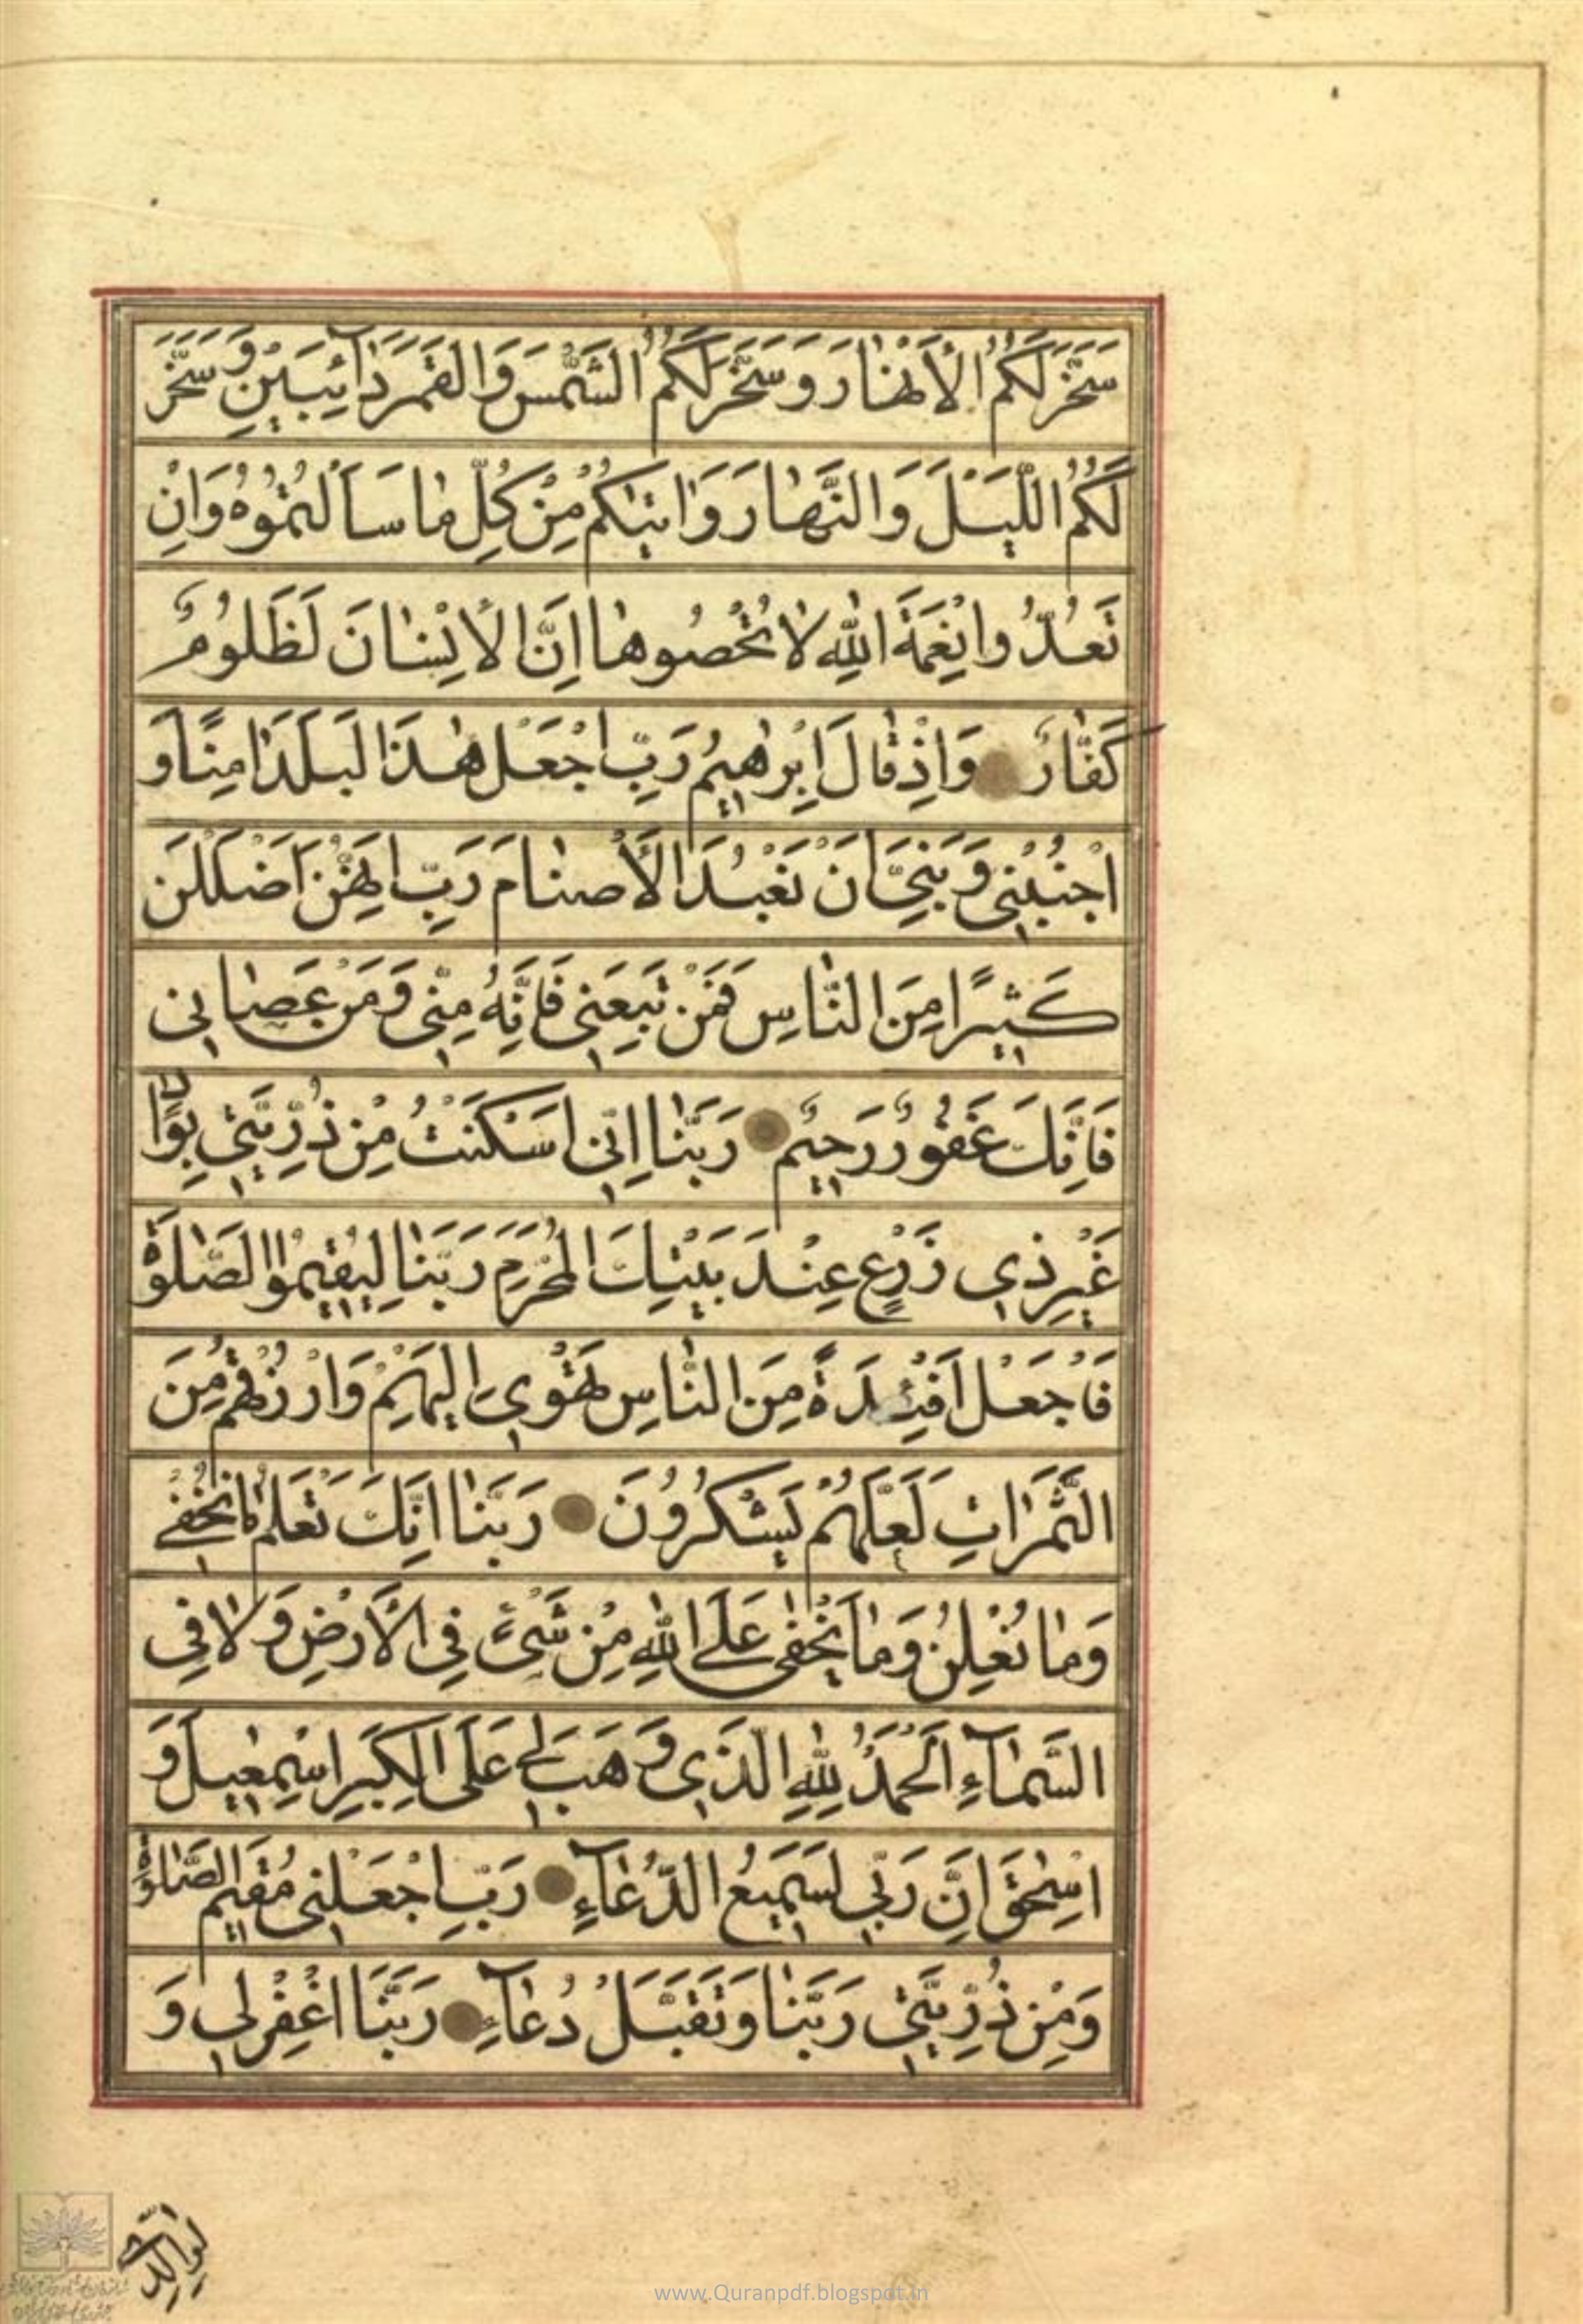 سَخَّرَ لَكُمُ الْأَنْهٰارَ وَسَخَّرَ لَكُمُ الشَّمْسَ وَالْقَمَرَ دٰآئِبَيْنِ وَسَخَّرَ
لَكُمُ اللَّيْلَ وَالنَّهٰارَ وَاٰتٰيكُمْ مِنْ كُلِّ مٰا سَاَلْتُمُوهُ وَاِنْ
تَعُدُّوا نِعْمَةَ اللّٰهِ لٰا تُحْصُوهٰا اِنَّ الْاِنْسٰانَ لَظَلُومٌ
كَفّٰارٌ وَاِذْ قٰالَ اِبْرٰهِيمُ رَبِّ اجْعَلْ هٰذَا الْبَلَدَ اٰمِنًا وَ
اجْنُبْنِي وَبَنِيَّ اَنْ نَعْبُدَ الْأَصْنٰامَ رَبِّ اِنَّهُنَّ اَضْلَلْنَ
كَثِيرًا مِنَ النّٰاسِ فَمَنْ تَبِعَنِي فَاِنَّهُ مِنّي وَمَنْ عَصٰانِي
فَاِنَّكَ غَفُورٌ رَحِيمٌ رَبَّنٰا اِنّي اَسْكَنْتُ مِنْ ذُرِّيَّتِي بِوٰادٍ
غَيْرِ ذِي زَرْعٍ عِنْدَ بَيْتِكَ الْمُحَرَّمِ رَبَّنٰا لِيُقِيمُوا الصَّلٰوةَ
فَاجْعَلْ اَفْئِدَةً مِنَ النّٰاسِ تَهْوِي اِلَيْهِمْ وَارْزُقْهُمْ مِنَ
الثَّمَرٰاتِ لَعَلَّهُمْ يَشْكُرُونَ رَبَّنٰا اِنَّكَ تَعْلَمُ مٰا نُخْفِي
وَمٰا نُعْلِنُ وَمٰا يَخْفٰى عَلَى اللّٰهِ مِنْ شَيْءٍ فِي الْأَرْضِ وَلٰا فِي
السَّمٰآءِ اَلْحَمْدُ لِلّٰهِ الَّذِي وَهَبَ لِي عَلَى الْكِبَرِ اِسْمٰعِيلَ وَ
اِسْحٰقَ اِنَّ رَبّي لَسَمِيعُ الدُّعٰآءِ رَبِّ اجْعَلْنِي مُقِيمَ الصَّلٰوةِ
وَمِنْ ذُرِّيَّتِي رَبَّنٰا وَتَقَبَّلْ دُعٰآءِ رَبَّنَا اغْفِرْلِي وَ
لوالدي
www.Quranpdf.blogspot.in